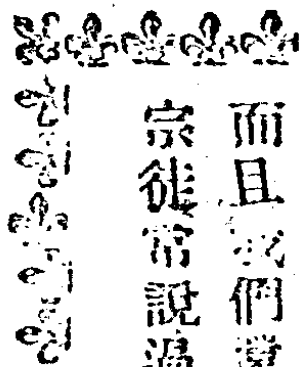 而且我們
宗徒常說過